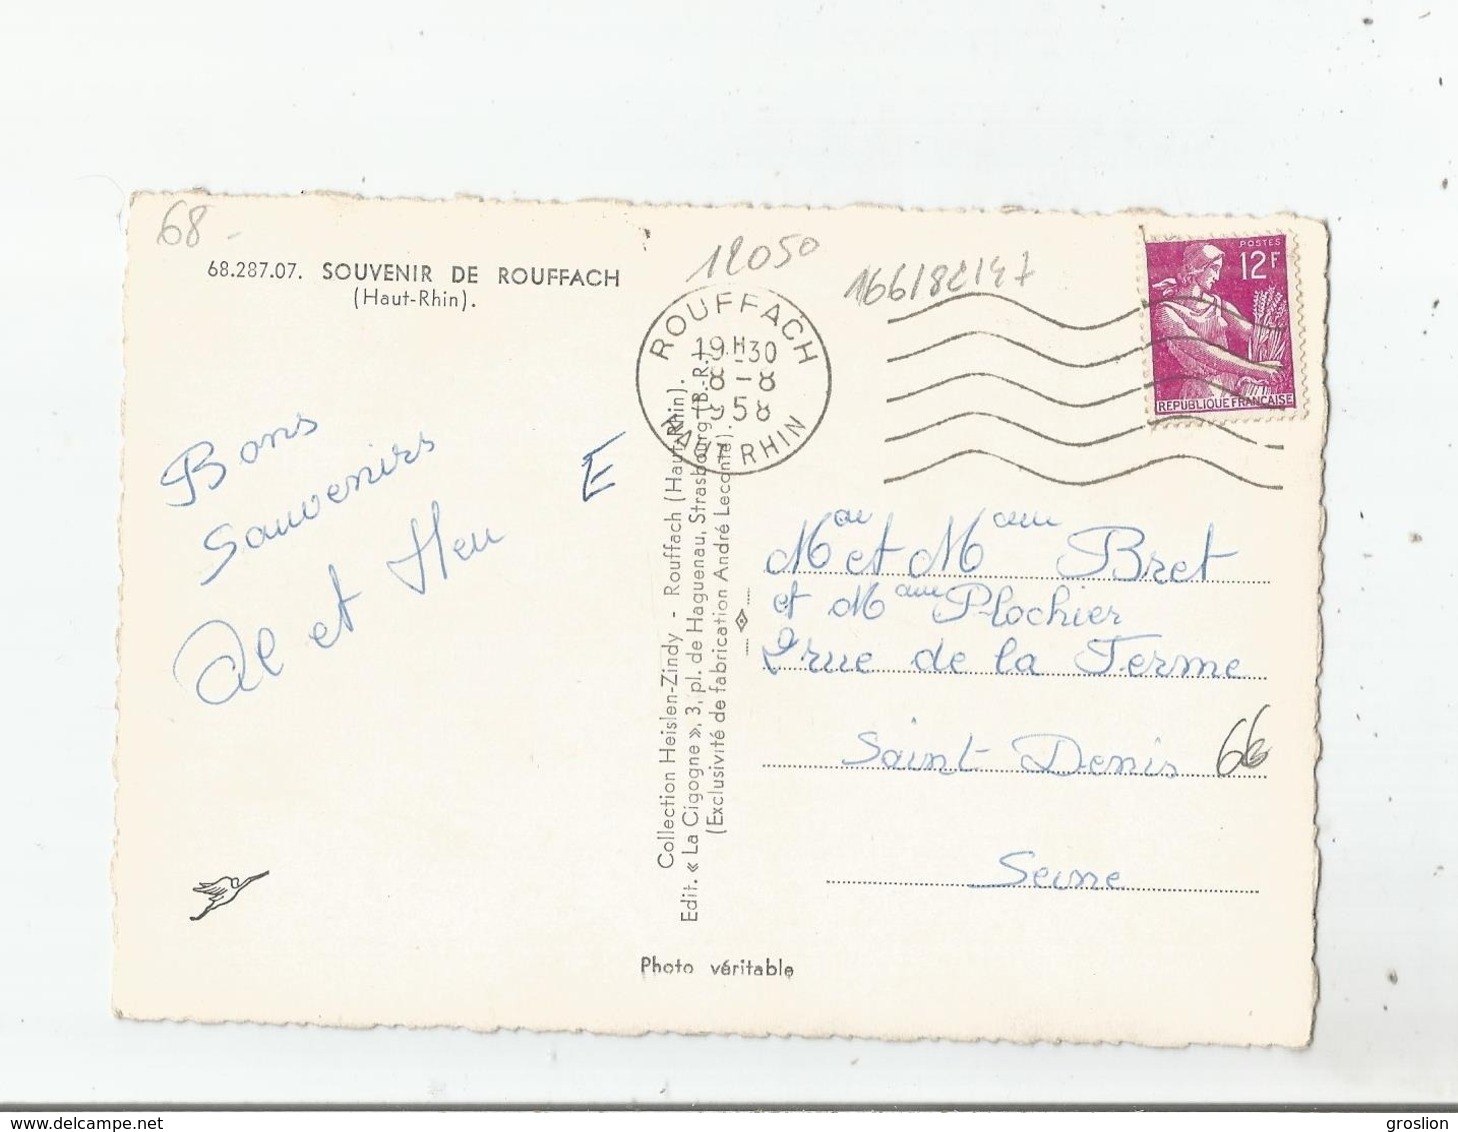 68
68.287.07. SOUVENIR DE ROUFFACH
(Haut-Rhin).
12050
166/82/47
POSTES
12F
REPUBLIQUE FRANÇAISE
ROUFFACH
19H30
8-8
1958
HAUT RHIN
Bons
Souvenirs
et
E
Collection Heislen-Zindy - Rouffach (Haut-Rhin).
Edit. « La Cigogne », 3, pl. de Haguenau, Strasbourg (B.-R.).
(Exclusivité de fabrication André Leconte).
et M Bret
et M Plochier
rue de la Ferme
Saint Denis
66
Seine
Photo véritable
delcampe.net
groslion